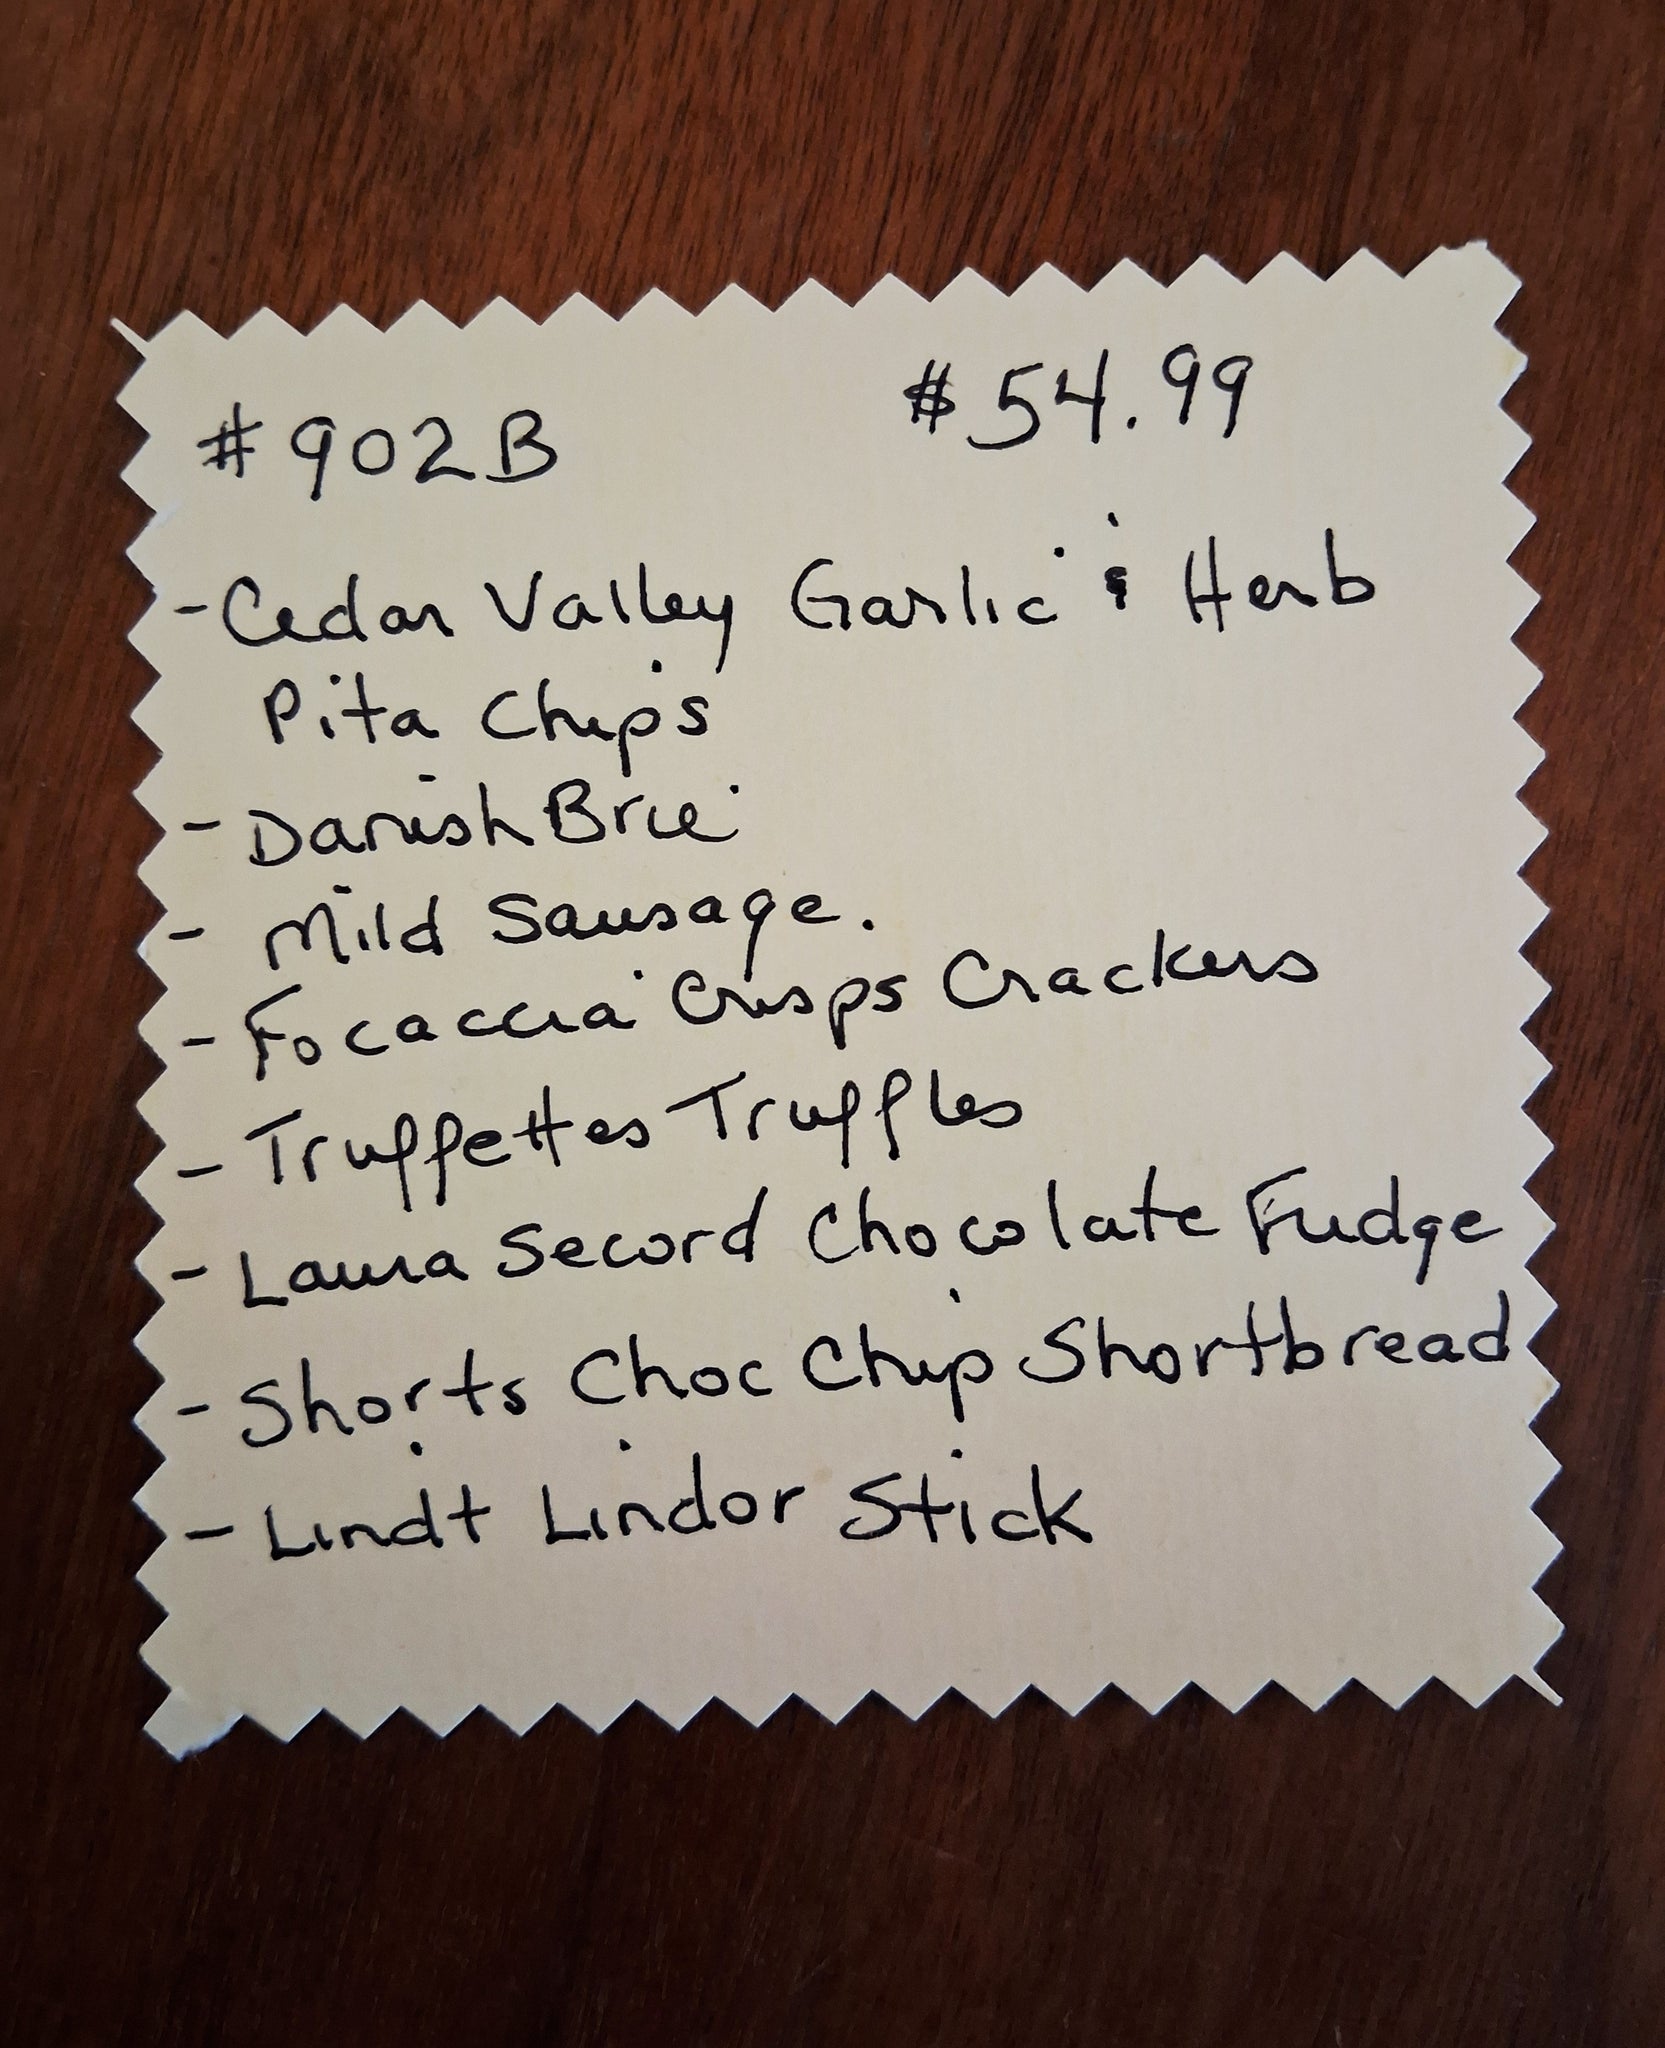 #902B $54.99
- Cedar Valley Garlic & Herb
Pita Chips
- Danish Brie
- Mild Sausage.
- Focaccia Crisps Crackers
- Truffettes Truffles
- Laura Secord Chocolate Fudge
- Shorts Choc Chip Shortbread
- Lindt Lindor Stick